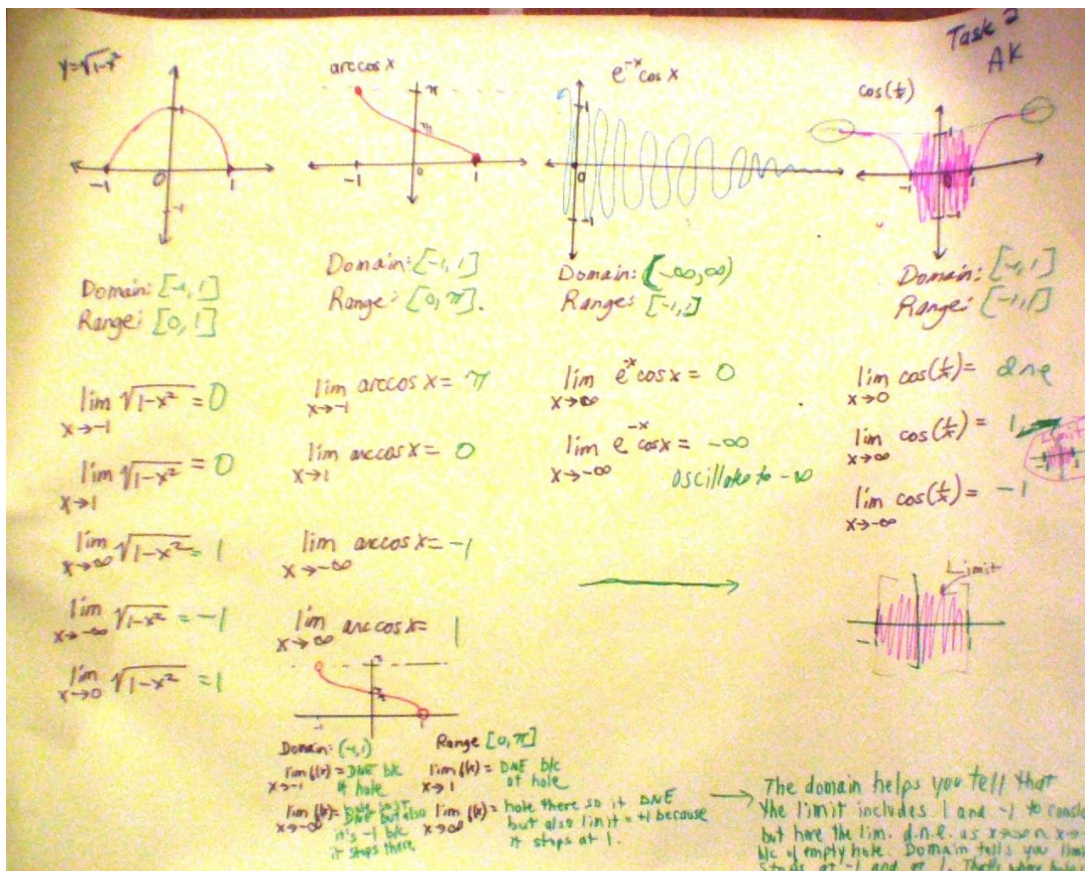 Task 2
AK
y=√1-x²
1
-1 0 1
-1
Domain: [-1,1]
Range: [0,1]
lim √1-x² = 0
x→-1
lim √1-x² = 0
x→1
lim √1-x² = 1
x→∞
lim √1-x² = -1
x→-∞
lim √1-x² = 1
x→0
arccos x
π
-1 0 1
Domain: [-1,1]
Range: [0,π].
lim arccos x = π
x→-1
lim arccos x = 0
x→1
lim arccos x = -1
x→-∞
lim arccos x = 1
x→∞
-1
Domain: (-1,1) Range [0,π]
lim f(x) = DNE b/c
x→-1 of hole
lim f(x) = DNE b/c
x→1 of hole
lim f(x) =
x→-∞ DNE but also
it's -1 b/c
it stops there
lim f(x) = hole there so it DNE
x→∞ but also limit = +1 because
it stops at 1.
e^-x cos x
1
0
-1
Domain: (-∞,∞)
Range: [-1,1]
lim e^-x cos x = 0
x→∞
lim e^-x cos x = -∞
x→-∞
oscillates to -∞
cos(1/x)
1
-1 0 1
-1
Domain: [-1,1]
Range: [-1,1]
lim cos(1/x) = dne
x→0
lim cos(1/x) = 1
x→∞
Limit
-1 1
lim cos(1/x) = -1
x→-∞
Limit
-1 1
→ The domain helps you tell that
the limit includes 1 and -1 to
but here the lim. d.n.e. as x→
b/c of empty hole. Domain tells you
stops at -1 and at 1. That's where